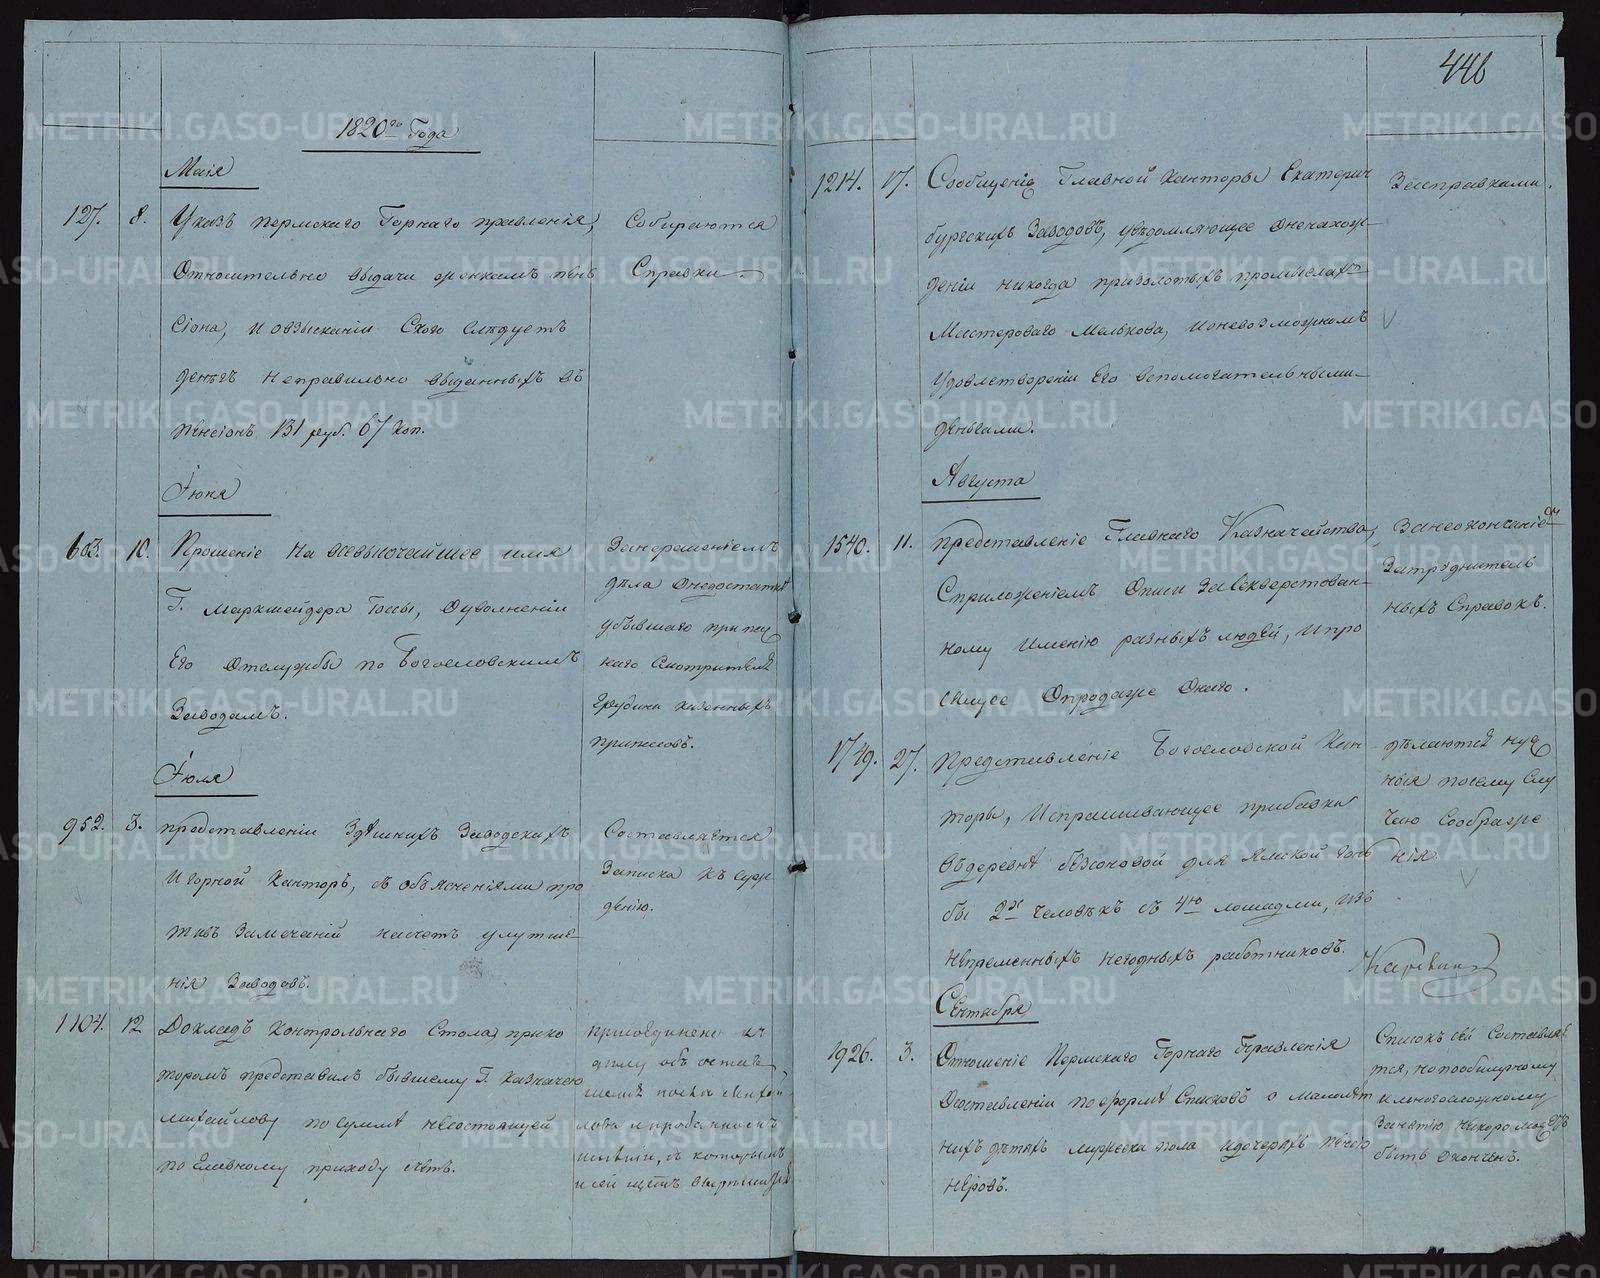 446
1820го Года
Маія
127. 8. Указъ Пермскаго Горнаго правленія,
Относительно выдачи женкамъ пен
сіона, и овзысканіи Ского Слѣдуетъ
денегъ неправильно выданныхъ въ
пенсіонъ 131 руб. 67 коп.
Собираются
Справки
Іюня
603. 10. Прошеніе на всевысочайшее имя
Г. Маркшейдера Тосы, Оуволненіи
Его Отслужбы по Богословскимъ
Заводамъ.
Занерѣшеніемъ
дѣла Онедостаткѣ
убывшаго
Смотрителя
казенныхъ
припасовъ.
Іюля
952. 3. представленіи Здѣшнихъ Заводскихъ
И горной Канторъ, съ объясненіями про
тивъ Замечаній насчетъ улутше-
нія Заводовъ.
Составляется
Записка къ сужде
денію.
1104. 12 Докладъ Контрольнаго Стола, прико
торомъ представилъ бывшему Г. Казначею
михайлову по суммѣ несостоящей
по Главному приходу счетъ.
присоединено къ
дѣлу объ
после Михай
лова
съ которымъ
и сей щетъ
1214. 17. Сообщеніе Главной Канторы Екатерин
бургскихъ Заводовъ, увѣдомляющее Оненахож-
деніи никогда призолотыхъ промыслахъ
Мастероваго Мелькова, и оневозможномъ
Удовлетвореніи Его вспомогательными
деньгами.
Засправками.
Августа
1540. 11. представленіе Главнаго Казначейства,
Сприложеніемъ Описи Засеквестрован-
ному Имѣнію разныхъ людей, и про
сящее Опродаже Онаго.
Занеокончаніемъ
Затруднитель
ныхъ Справокъ.
1749. 27. Представленіе Богословской Кан-
торы, Испрашивающее прибавки
Въдеревнѣ бѣссоновой для Ямской гонь
бы 2х человѣкъ съ 4ю лошадми, изъ
непременныхъ негодныхъ работниковъ.
дѣлаются нуж
ныя посему слу
чаю Соображе
нія.
Сентября
1926. 3. Отношеніе Пермскаго Горнаго Правленія
Одоставленіи поформѣ Списковъ о малолѣт
нихъ дѣтяхъ мужеска пола идочеряхъ пенсіо
неровъ.
Списокъ сей Составляе
тся, нопообширному
имногосложному
Занятію нескоро можетъ
быть Оконченъ.